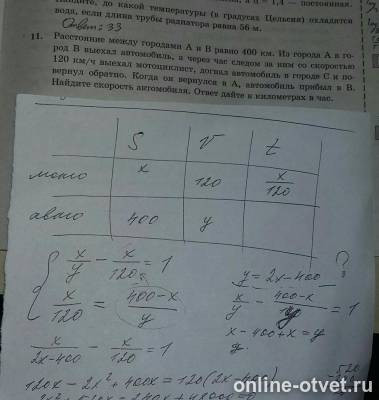 до какой температуры (в градусах Цельсия) охладится
вода, если длина трубы радиатора равна 56 м.
Ответ: 33
11. Расстояние между городами А и В равно 400 км. Из города А в го-
род В выехал автомобиль, а через час следом за ним со скоростью
120 км/ч выехал мотоциклист, догнал автомобиль в городе С и по-
вернул обратно. Когда он вернулся в А, автомобиль прибыл в В.
Найдите скорость автомобиля. Ответ дайте в километрах в час.
S V t
мото x 120 x/120
авто 400 y
x/y - x/120 = 1
x/120 = (400-x)/y
x/(2x-400) - x/120 = 1
y = 2x-400 ?
x/y - (400-x)/y = 1
x-400+x=y
y.
120x - 2x² + 400x = 120(2x-400)
520
online-otvet.ru